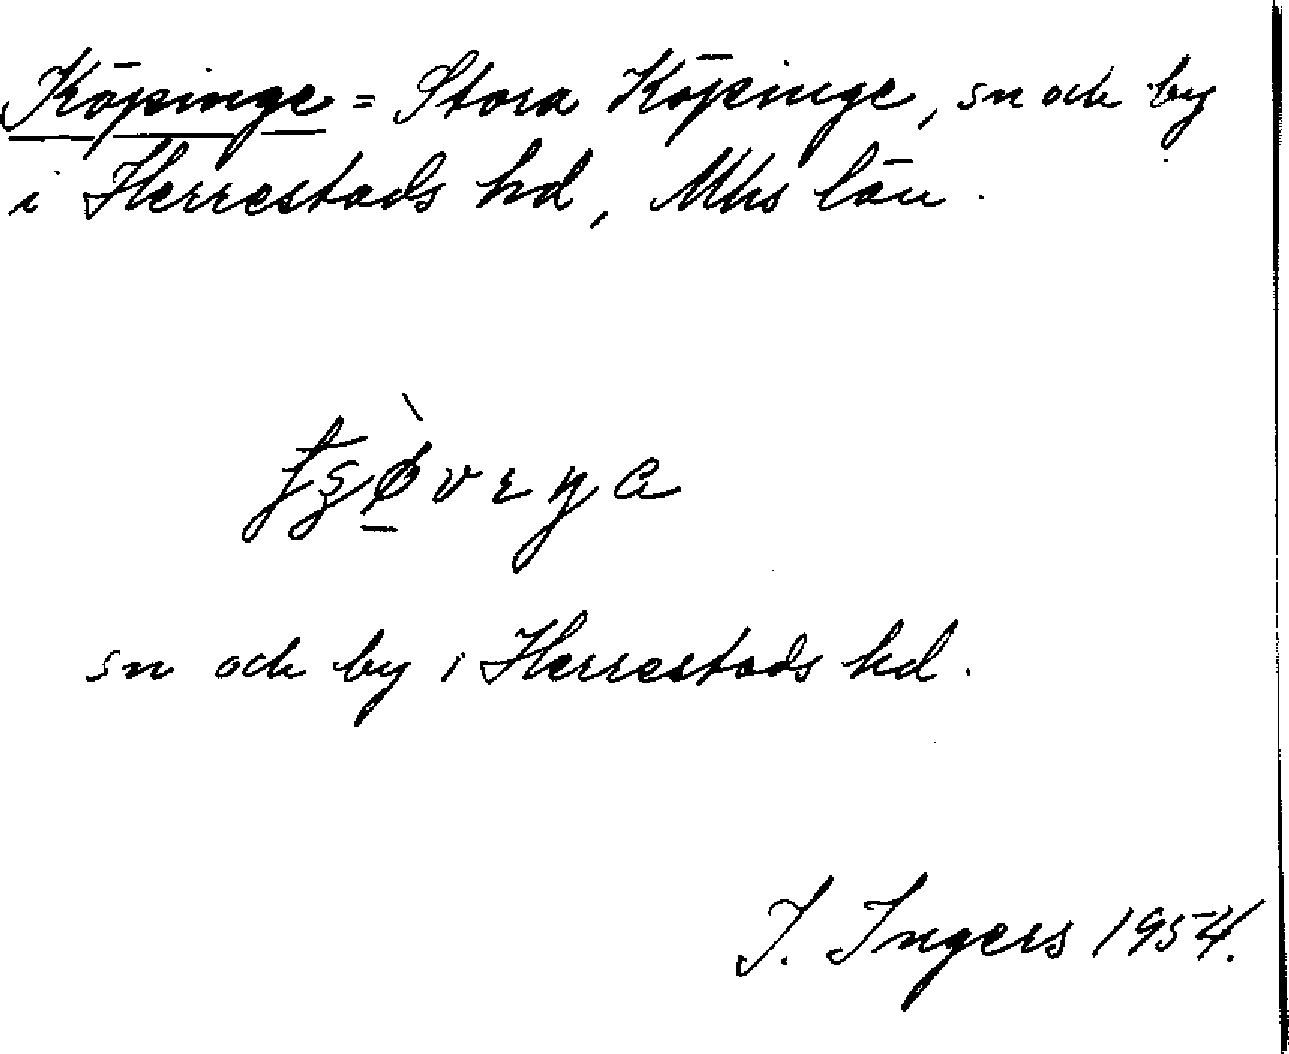 Köpinge = Stora Köpinge, sn och by
i Herrestads hd, Mhs län.
sn och by i Herrestads hd.
I. Ingers 1954.